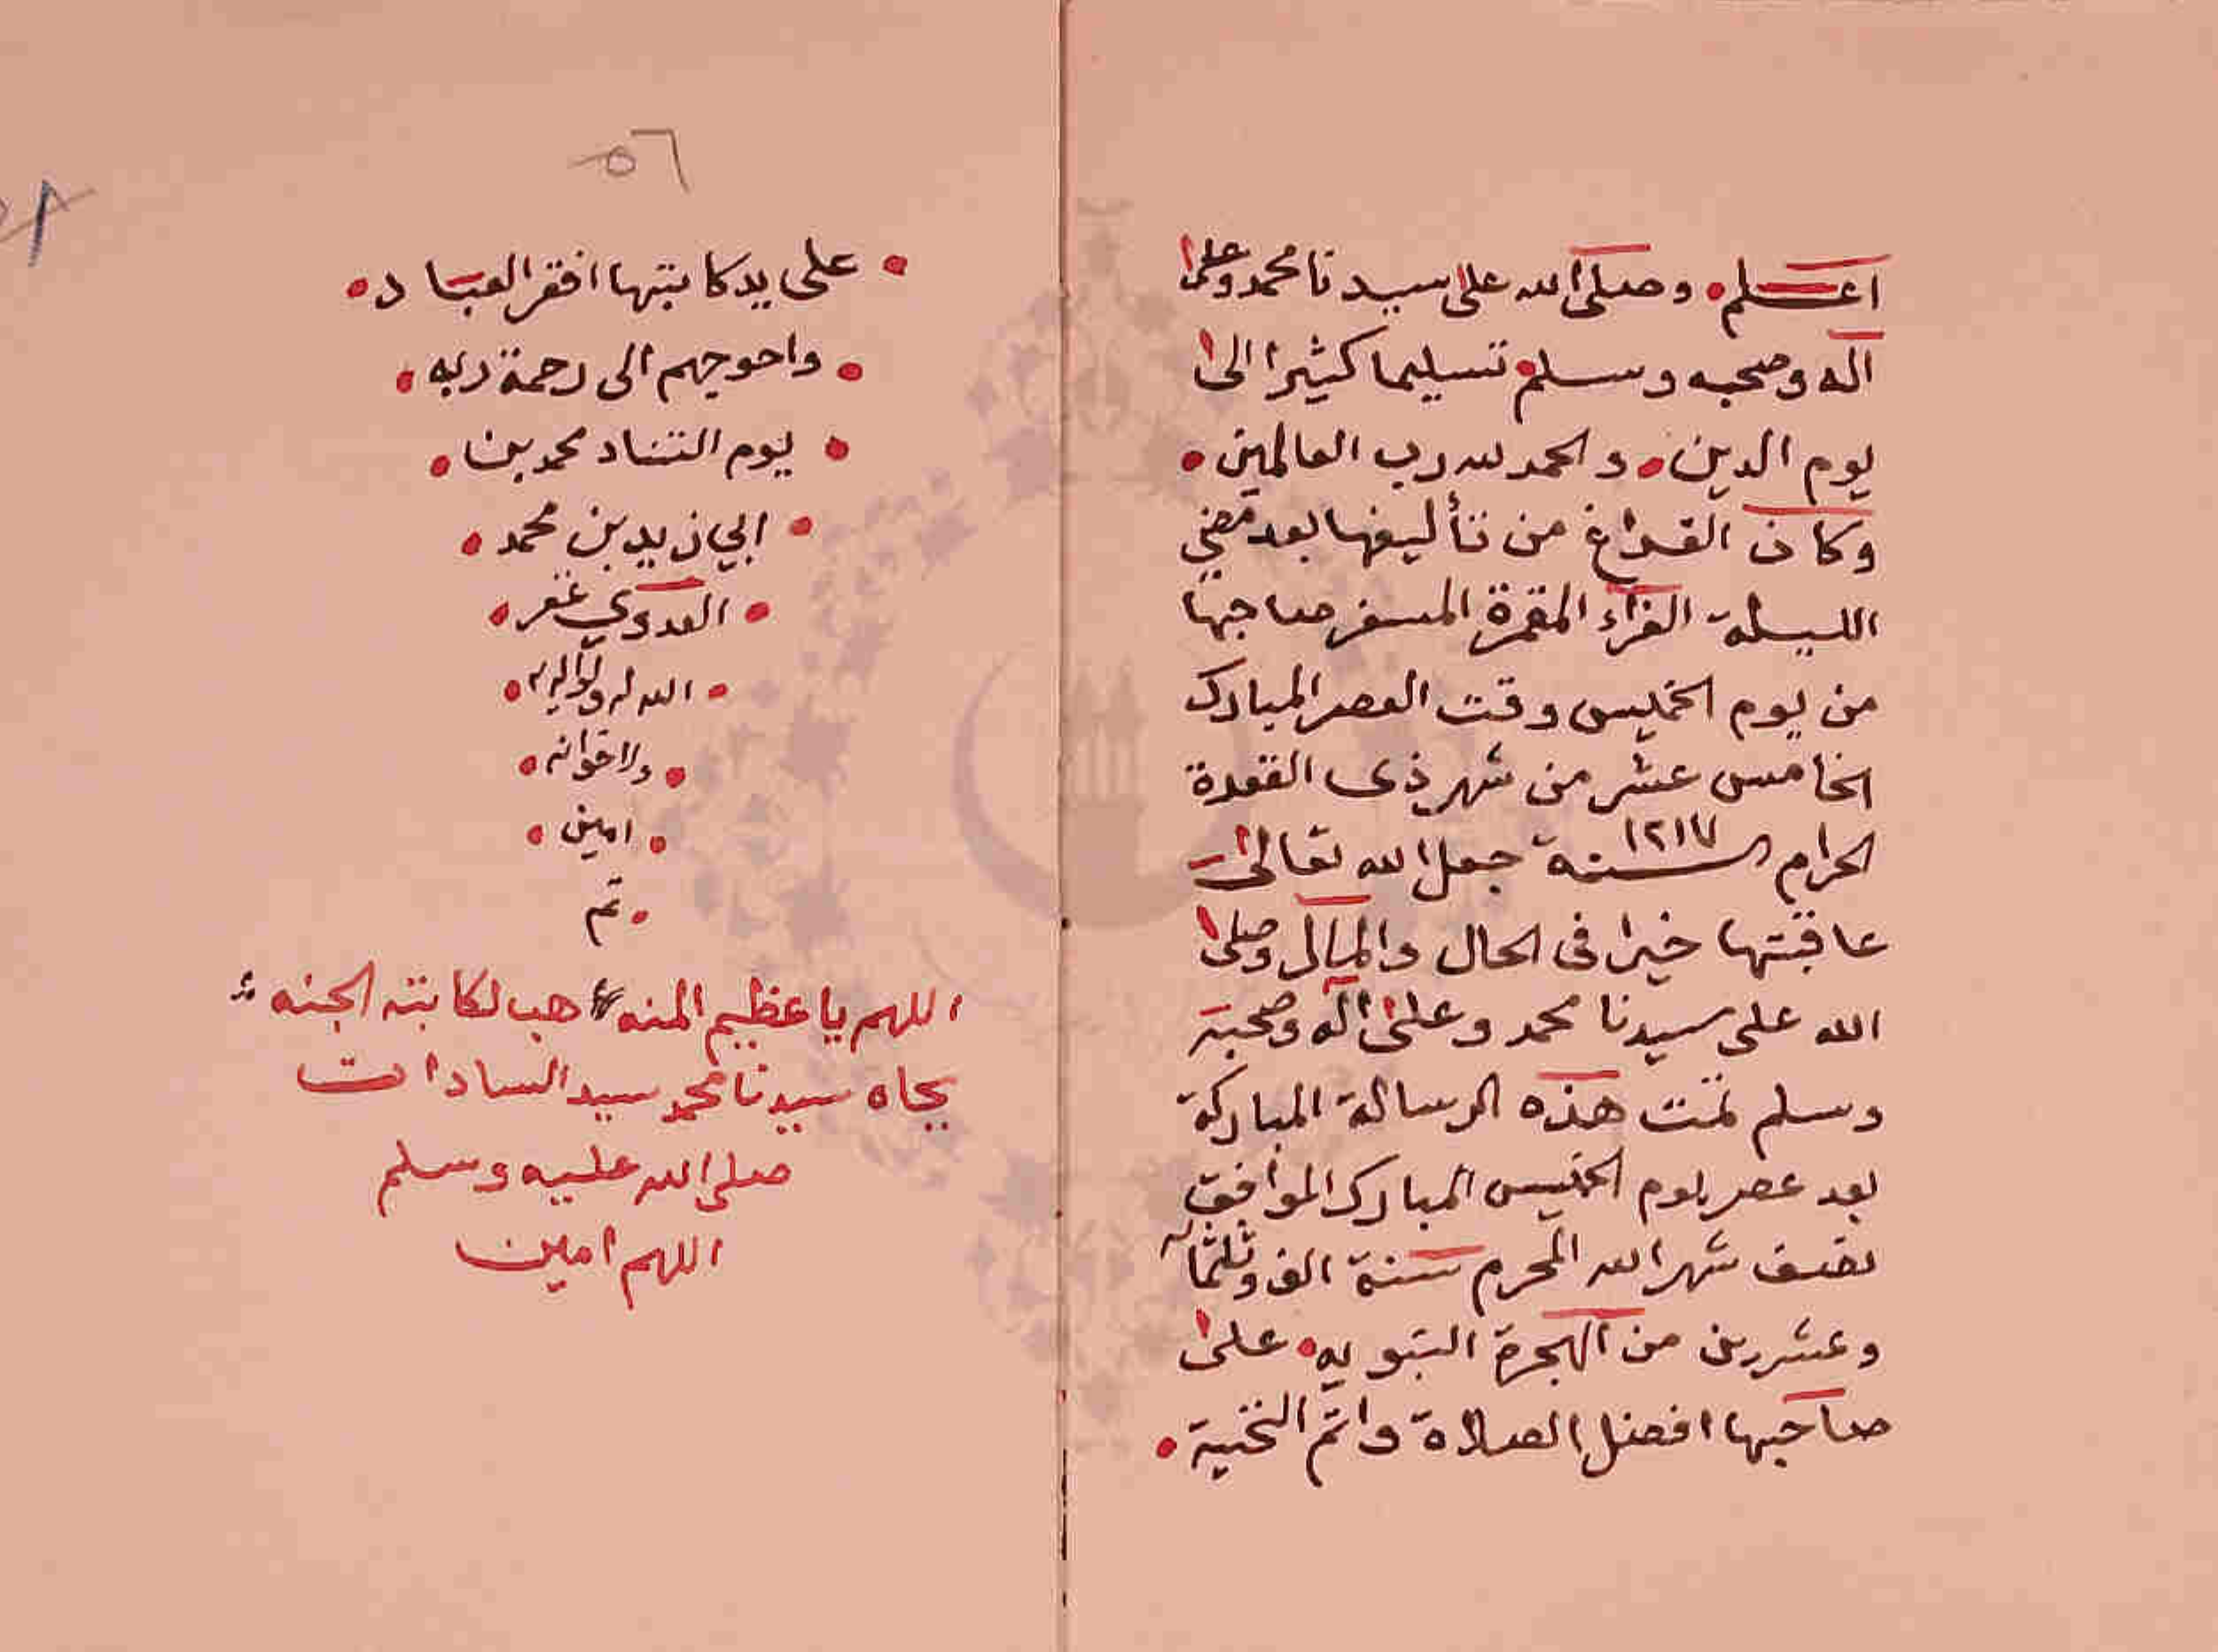 اعلم وصلى الله على سيدنا محمد وعلى
اله وصحبه وسلم تسليما كثيرا الى
يوم الدين والحمد لله رب العالمين
وكان الفراغ من تأليفها بعد مضي
الليلة الغراء المقمرة المسفر صاحبها
من يوم الخميس وقت العصر المبارك
الخامس عشر من شهر ذى القعدة
الحرام سنة ١٢١٧ جعل الله تعالى
عاقبتها خيرا فى الحال والمآل وصلى
الله على سيدنا محمد وعلى آله وصحبه
وسلم تمت هذه الرسالة المباركة
بعد عصر يوم الخميس المبارك الموافق
نصف شهر الله المحرم سنة الف وثلثماله
وعشرين من الهجرة النبويه على
صاحبها افضل الصلاة واتم التحية
٥٦
على يد كاتبتها افقر العباد
واحوجهم الى رحمة ربه
يوم التناد محمد بن
ابي زيد بن محمد
العدوي غفر
الله له ولوالديه
ولاخوانه
امين
تم
اللهم يا عظيم المنه هب لكاتبته الجنه
بجاه سيدنا محمد سيد السادات
صلى الله عليه وسلم
اللهم امين